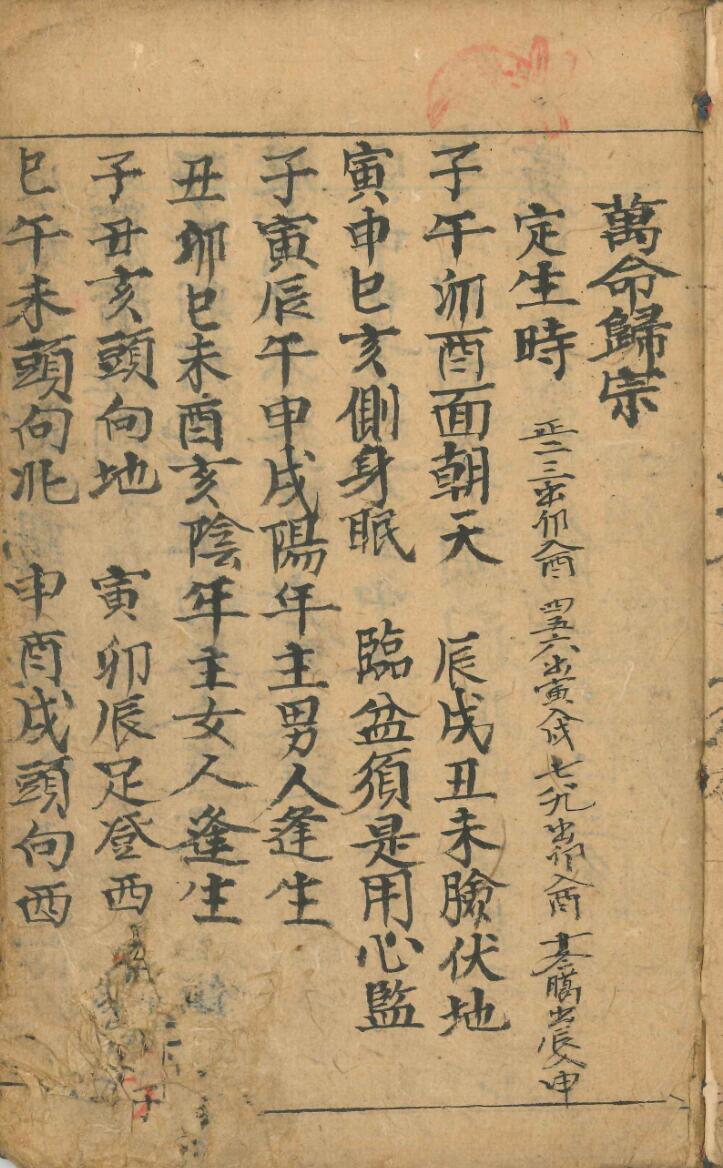 萬命歸宗
定生時
正二三出卯入酉 四五六出寅入戌 七八九出卯入酉 冬臘出辰入申
子午卯酉面朝天 辰戌丑未臉伏地
寅申巳亥側身眠 臨盆須是用心監
子寅辰午申戌陽年主男人逢生
丑卯巳未酉亥陰年主女人逢生
子丑亥頭向地 寅卯辰足登西
巳午未頭向北 申酉戌頭向西